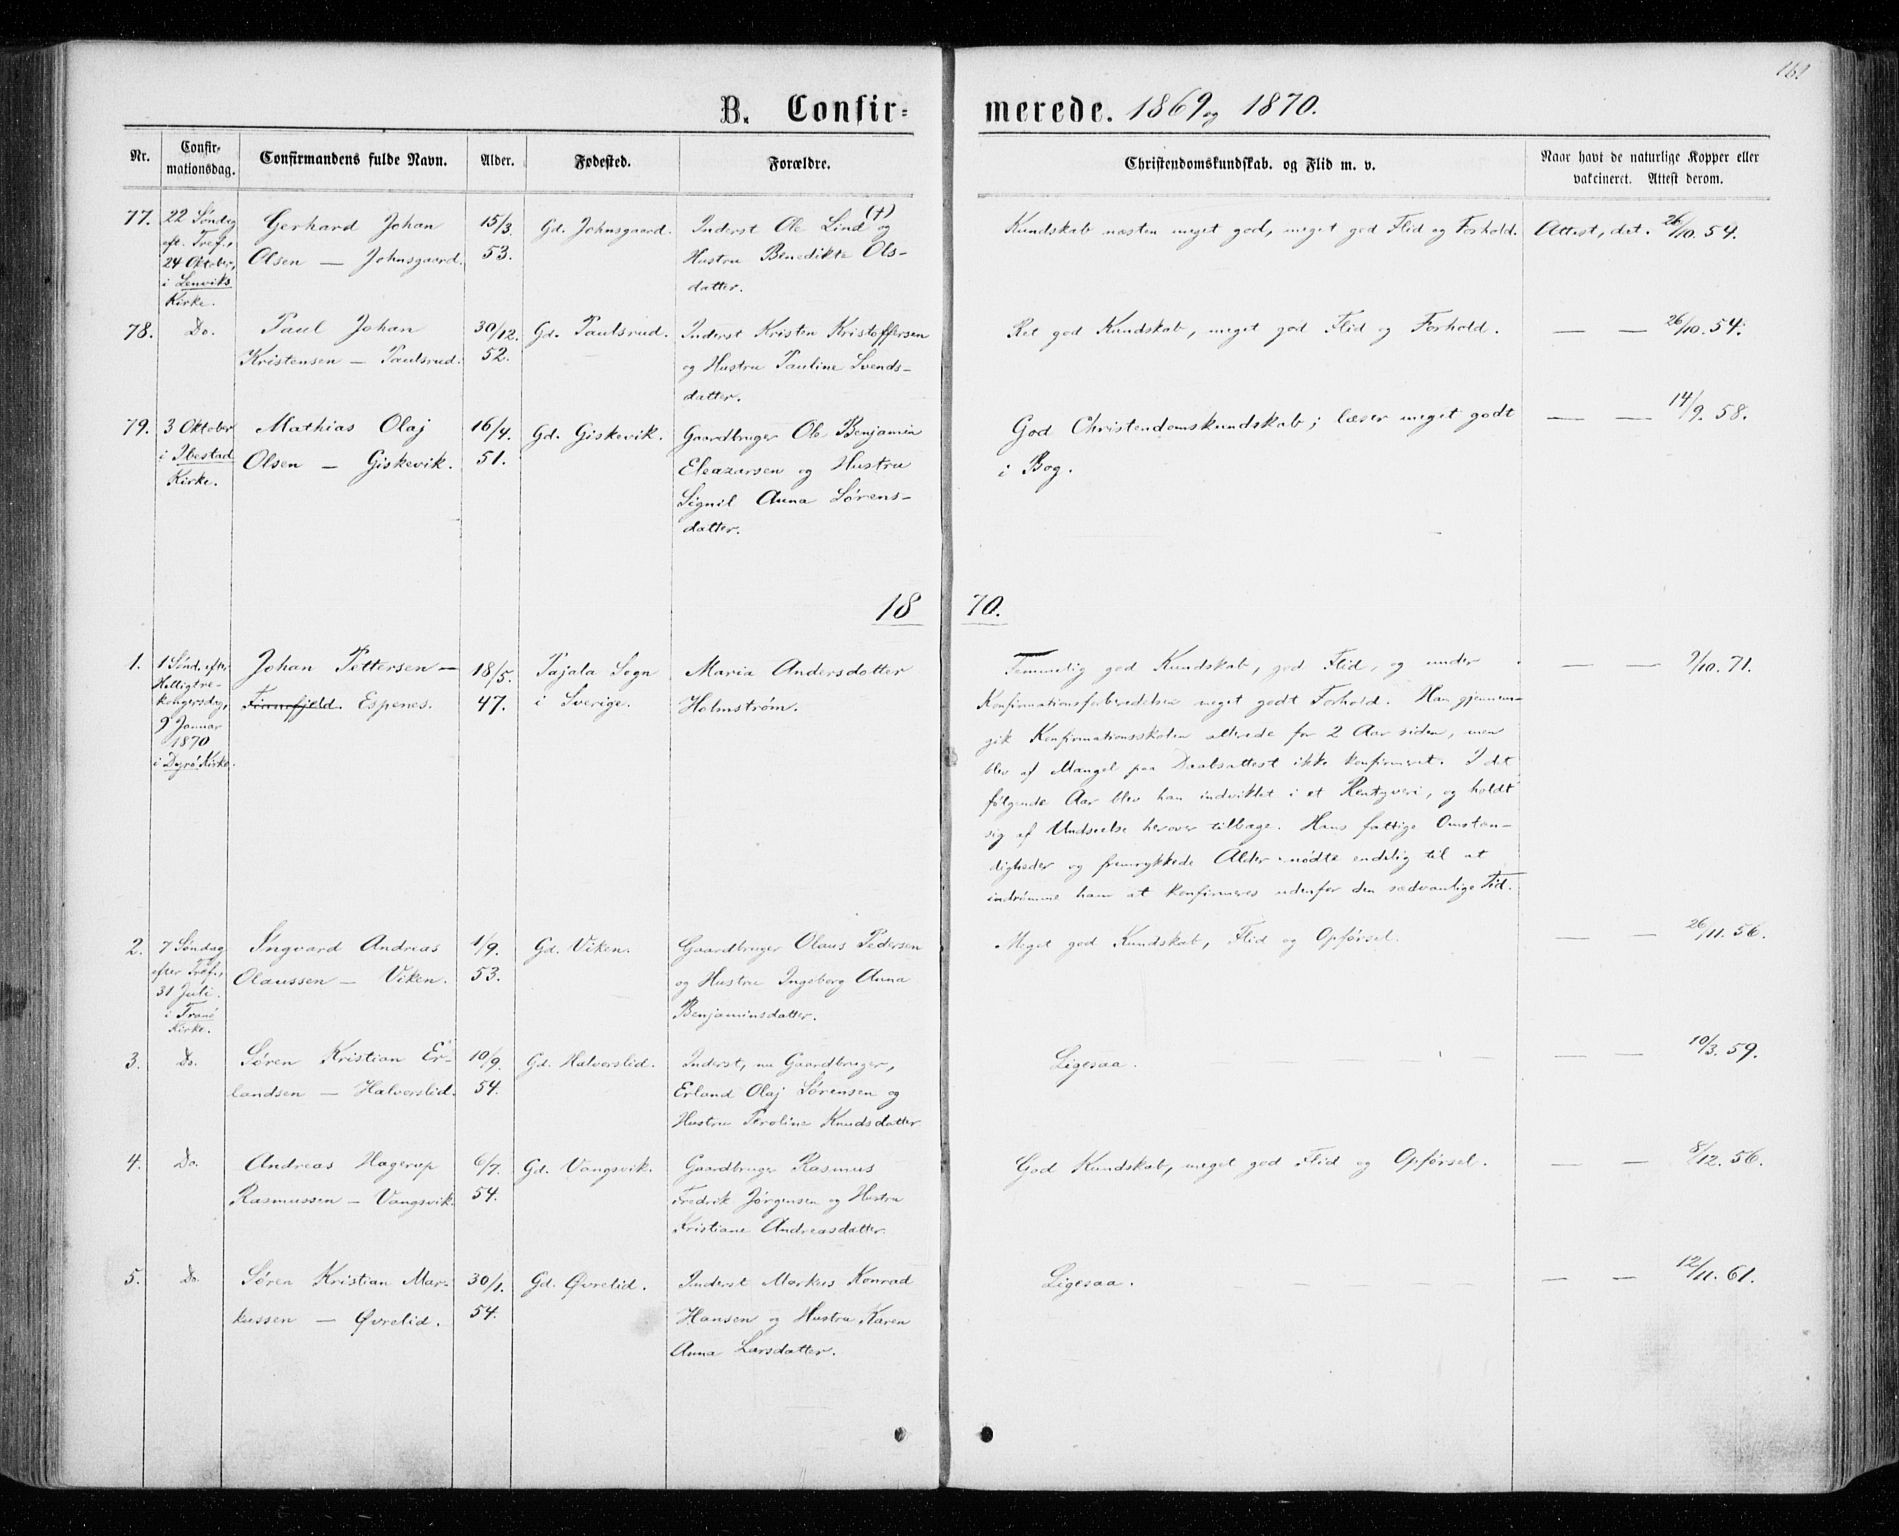 161
B. Confir-
merede. 1869 og 1870.
Nr.
Confir-
mationsdag.
Confirmandens fulde Navn.
Alder.
Fødested.
Forældre.
Christendomskundskab. og Flid m. v.
Naar havt de naturlige Kopper eller
vakcineret. Attest derom.
77.
22 Søndag
eft. Tref.,
24 Oktober,
i Lenviks
Kirke.
Gerhard Johan
Olsen — Johnsgaard.
15/3.
53.
Gd. Johnsgaard.
Inderst Ole Lind (†) og
Hustru Benedikte Ols-
datter.
Kundskab næsten meget god, meget god Flid og Forhold.
Attest, dat. 26/10. 54.
78.
Do.
Paul Johan
Kristensen — Paulsrud.
30/12.
52.
Gd. Paulsrud.
Inderst Kristen Kristoffersen
og Hustru Pauline Svends-
datter.
Ret god Kundskab, meget god Flid og Forhold.
— — 26/10. 54.
79.
3 Oktober
i Ibestad
Kirke.
Mathias Olaj
Olsen — Giskevik.
16/4.
51.
Gd. Giskevik.
Gaardbruger Ole Benjamin
Eleazarsen og Hustru
Signil Anna Sørens-
datter.
God Christendomskundskab; læser meget godt
i Bog.
— — 14/9. 58.
18 70.
1.
1 Sønd. efter
Helligtre-
kongersdag,
9 Januar
1870
i Dyrø Kirke.
Johan Pettersen —
Finnefjeld. Espenes.
18/5.
47.
Pajala Sogn
i Sverige.
Maria Andersdotter
Holmstrøm.
Temmelig god Kundskab, god Flid, og under
Konfirmationsforberedelsen meget godt Forhold. Han gjennem-
gik Konfirmationsskolen allerede for 2 Aar siden, men
blev af Mangel paa Daabsattest ikke konfirmeret. I det
følgende Aar blev han indviklet i et Rentyveri, og holdt
sig af Undseelse herover tilbage. Hans fattige Omstæn-
digheder og fremrykkede Alder nødte endelig til at
indrømme ham at konfirmeres udenfor den sædvanlige Tid.
— — 9/10. 71.
2.
7 Søndag
efter Tref.,
31 Juli
i Tranø
Kirke.
Ingvard Andreas
Olaussen — Viken.
1/9.
53.
Gd. Viken.
Gaardbruger Olaus Pedersen
og Hustru Ingeborg Anna
Benjaminsdatter.
Meget god Kundskab, Flid og Opførsel.
— — 26/11. 56.
3.
Do.
Søren Kristian Er-
landsen — Halverslid.
10/9.
54.
Gd. Halverslid.
Inderst, nu Gaardbruger,
Erland Olaj Sørensen og
Hustru Peroline Knudsdatter
Ligesaa.
— — 10/3. 59.
4.
Do.
Andreas Hagerup
Rasmussen — Vangsvik.
6/7.
54.
Gd. Vangsvik.
Gaardbruger Rasmus
Fredrik Jørgensen og Hustru
Kristiane Andreasdatter.
God Kundskab, meget god Flid og Opførsel.
— — 8/12. 56.
5.
Do.
Søren Kristian Mar-
kussen — Øvrelid.
30/1.
54.
Gd. Øvrelid.
Inderst Markus Konrad
Hansen og Hustru Karen
Anna Larsdatter.
Ligesaa.
— — 12/11. 61.